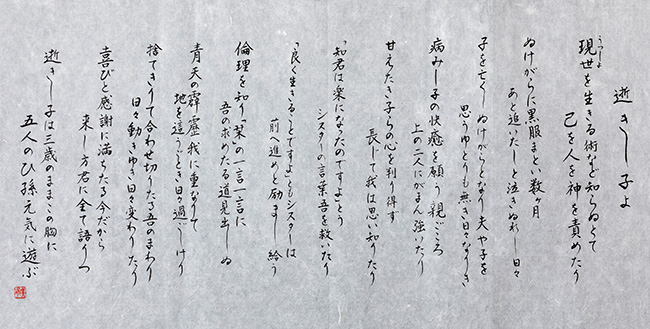 逝きし子よ
うつしよ
現世を生きる術など知らぬとて
己を人を神を責めたり
ぬけがらに黒服まとい数ヶ月
あと追いたしと泣きぬれし日々
子を亡くしぬけがらとなり夫や子を
思うゆとりも無き日々なりき
病みし子の快癒を願う親ごころ
上の二人にがまん強いたり
甘えたき子らの心を判り得ず
長じて我は思い知りたり
「知君は楽になったのですよ」とう
シスターの言葉吾を救いたり
「良く生きることですよ」ともシスターは
前へ進めと励まし給う
倫理を知り「栞」の一言一言に
吾の求めたる道見出しぬ
青天の霹靂我に重なりて
地を這うごとき日々過ごしけり
捨てきりて合わせ切りたる吾のまわり
日々動きゆき日々変わりたり
喜びと感謝に満ちたる今だから
来し方君に全て語りつ
逝きし子は三歳のままこの胸に
五人のひ孫元気に遊ぶ